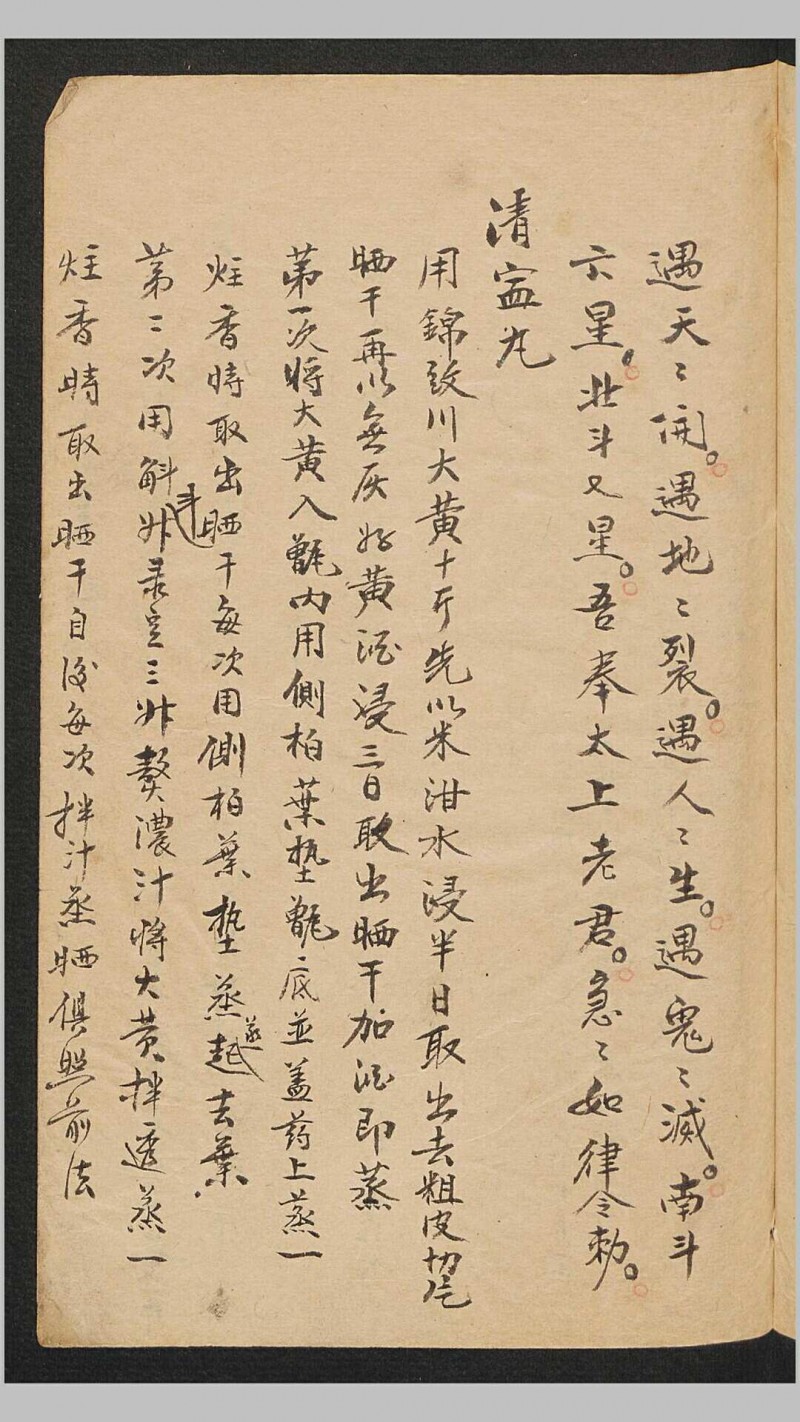 遇天〻開。遇地〻裂。遇人〻生。遇鬼〻滅。南斗
六星。北斗七星。吾奉太上老君。急〻如律令勅。
清寧丸
用錦紋川大黃十斤先以米泔水浸半日取出去粗皮切片
晒干再以無灰好黃酒浸三日取出晒干加酒即蒸
第一次將大黃入甑內用側柏葉墊甑底並蓋药上蒸一
炷香時取出晒干每次用側柏葉墊蒸起蒸去葉
第二次用斛斗 三 熬濃汁將大黃拌透蒸一
炷香時取出晒干自後每次拌汁蒸晒俱照前法